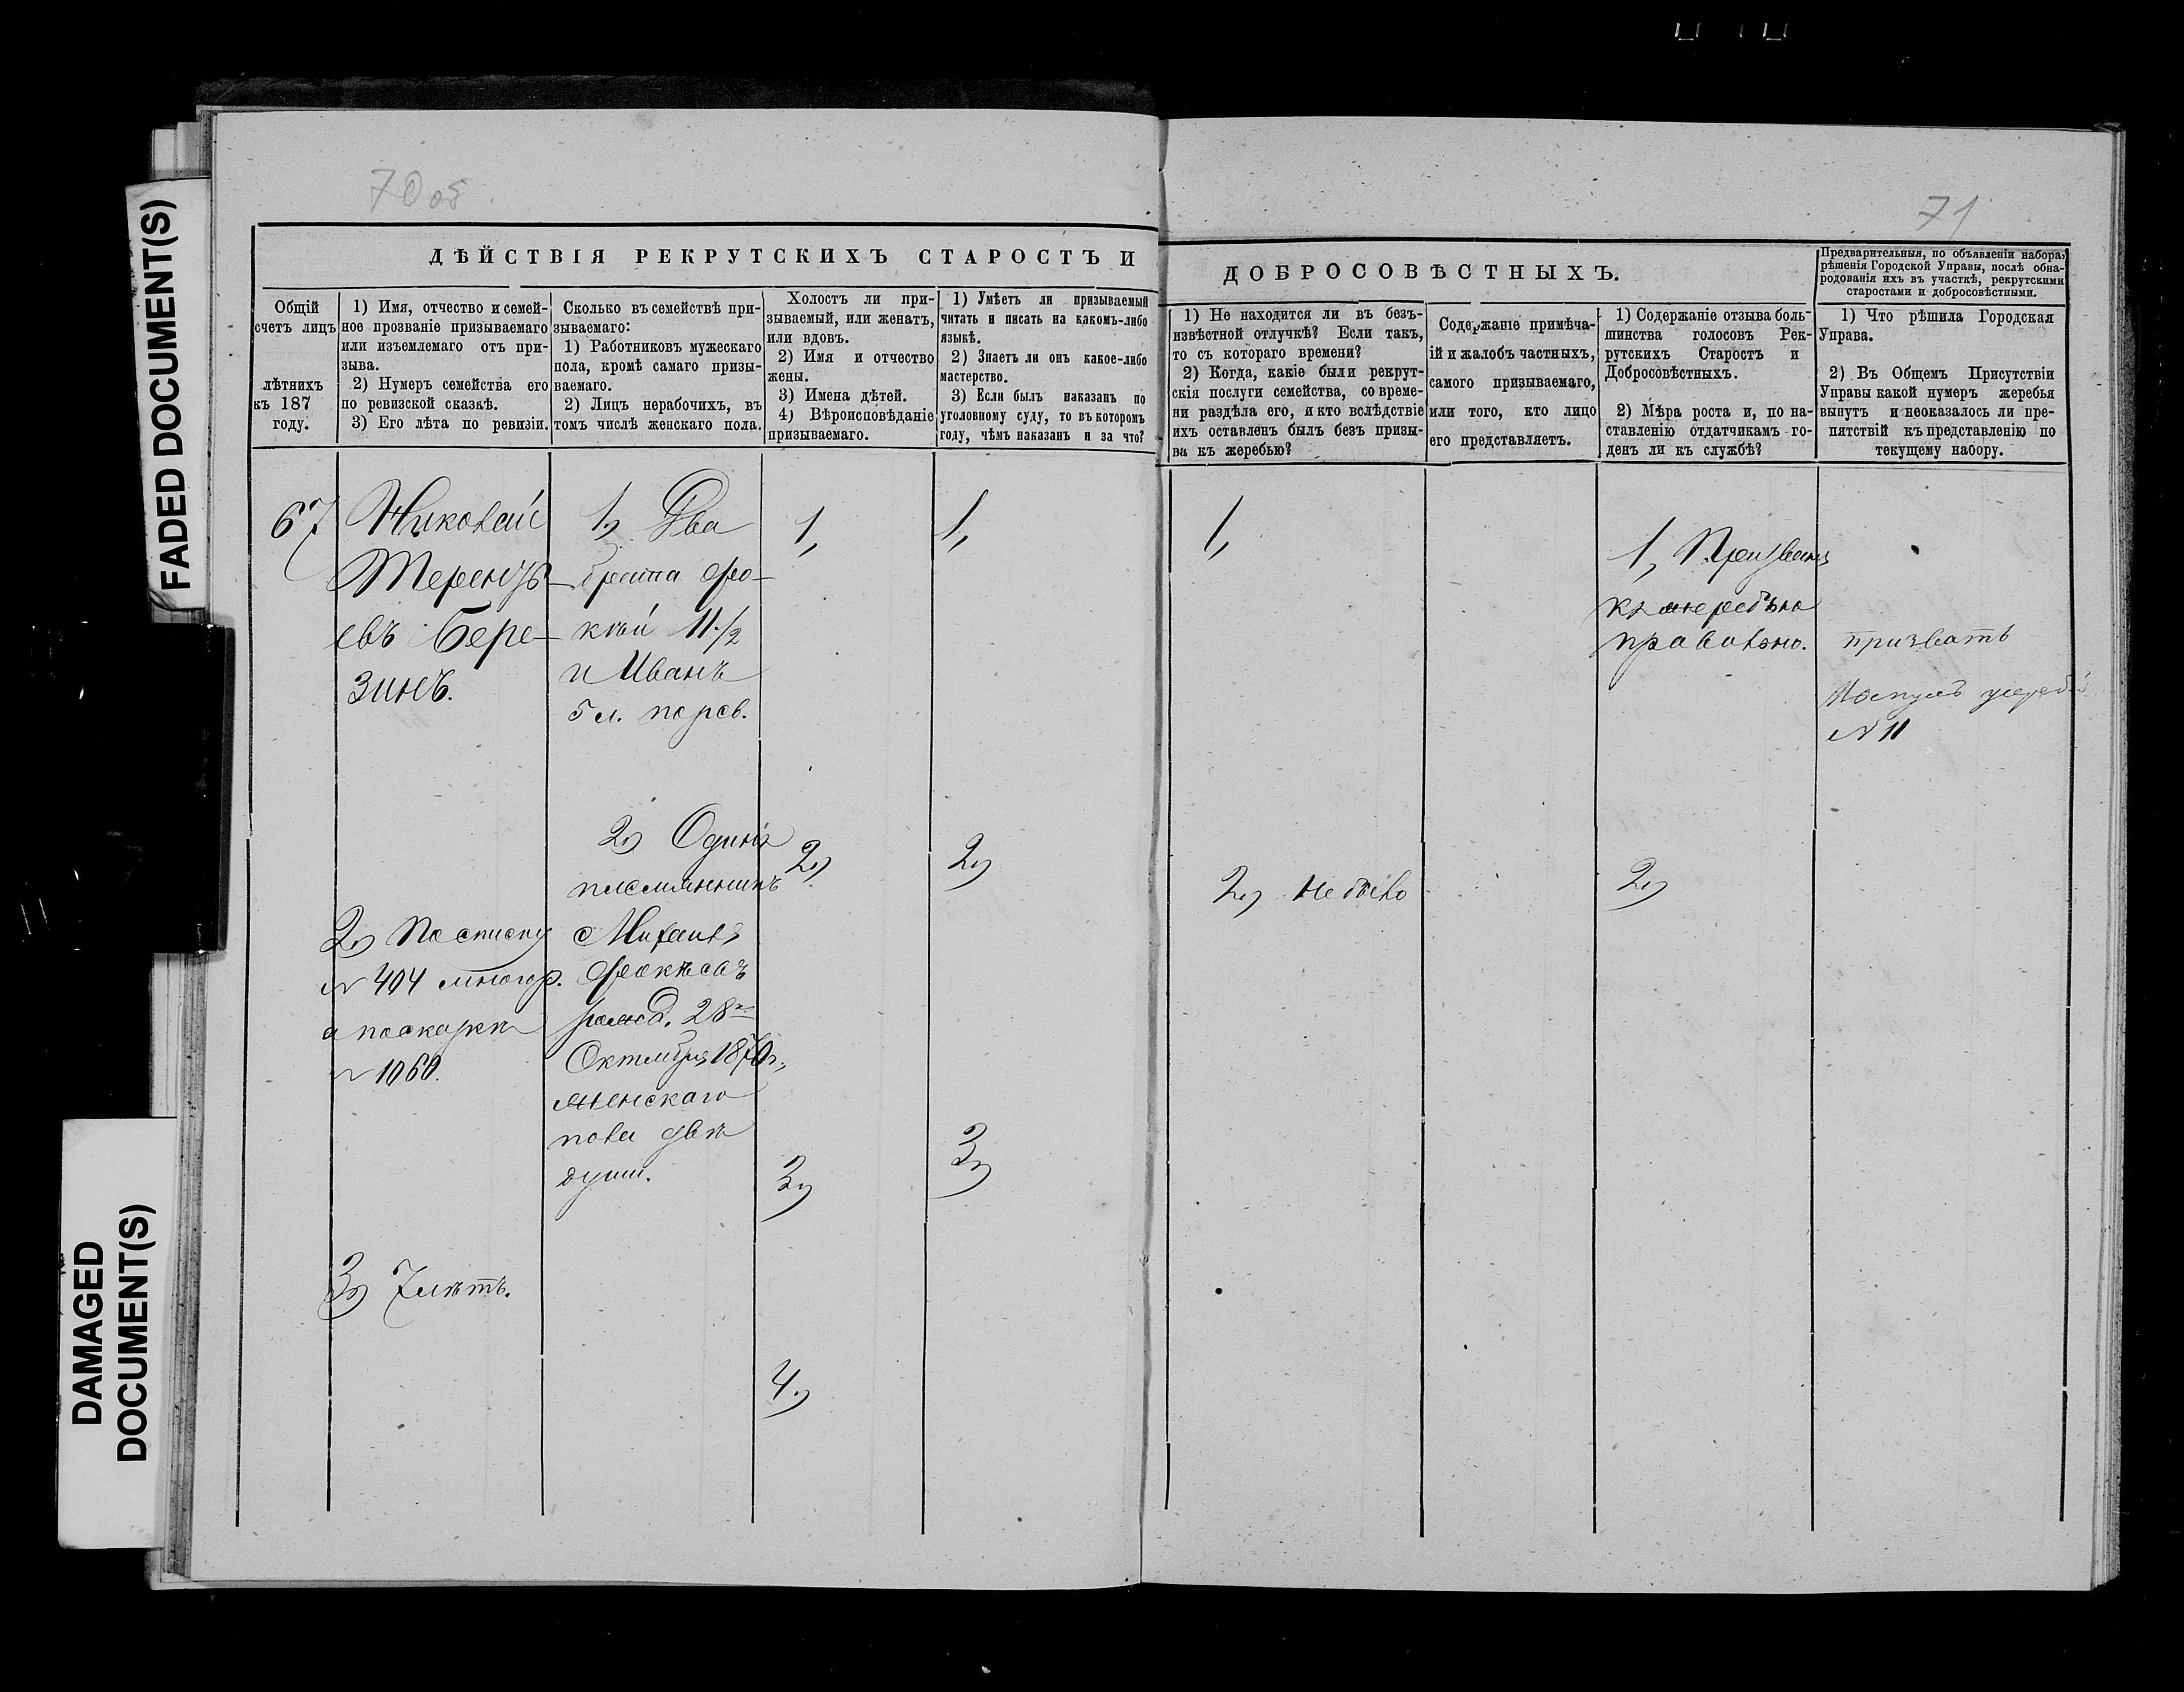 FADED DOCUMENT(S)
DAMAGED
DOCUMENT(S)
70 об.
ДѢЙСТВІЯ РЕКРУТСКИХЪ СТАРОСТЪ И
Общій
счетъ лицъ
лѣтнихъ
къ 187
году.
1) Имя, отчество и семей-
ное прозваніе призываемаго
или изъемлемаго отъ при-
зыва.
2) Нумеръ семейства его
по ревизской сказкѣ.
3) Его лѣта по ревизіи.
Сколько въ семействѣ при-
зываемаго:
1) Работниковъ мужескаго
пола, кромѣ самаго призы-
ваемаго.
2) Лицъ нерабочихъ, въ
томъ числѣ женскаго пола.
Холостъ ли при-
зываемый, или женатъ,
или вдовъ.
2) Имя и отчество
жены.
3) Имена дѣтей.
4) Вѣроисповѣданіе
призываемаго.
1) Умѣетъ ли призываемый
читать и писать на какомъ-либо
языкѣ.
2) Знаетъ ли онъ какое-либо
мастерство.
3) Если былъ наказанъ по
уголовному суду, то въ которомъ
году, чѣмъ наказанъ и за что?
67
Николай
Терентъ-
евъ Бере-
зинъ.
2) По списку
№ 404 многор.
а по скаркѣ
№ 1060.
3) 7 лѣтъ.
1) Два
брата Фо-
кѣй 11 1/2
и Иванъ
5 л. по рев.
2) Одинъ
племянникъ
Михаилъ
Фокѣевъ
рожд. 28го
Октября 1870 г.,
женскаго
пола двѣ
души.
1,
2)
3)
4)
1,
2)
3)
71
ДОБРОСОВѢСТНЫХЪ.
1) Не находится ли въ безъ-
извѣстной отлучкѣ? Если такъ,
то съ котораго времени?
2) Когда, какіе были рекрут-
скія послуги семейства, со време-
ни раздѣла его, и кто вслѣдствіе
ихъ оставленъ былъ безъ призы-
ва къ жеребью?
Содержаніе примѣча-
ій и жалобъ частныхъ,
самого призываемаго,
или того, кто лицо
его представляетъ.
1) Содержаніе отзыва боль-
шинства голосовъ Рек-
рутскихъ Старостъ и
Добросовѣстныхъ.
2) Мѣра роста и, по на-
ставленію отдатчикамъ го-
денъ ли къ службѣ?
Предварительныя, по объявленіи набора,
рѣшенія Городской Управы, послѣ обна-
родованія ихъ въ участкѣ, рекрутскими
старостами и добросовѣстными.
1) Что рѣшила Городская
Управа.
2) Въ Общемъ Присутствіи
Управы какой нумеръ жеребья
вынутъ и неоказалось ли пре-
пятствій къ представленію по
текущему набору.
1,
2) Не было
1, Призванъ
къ жеребью
правильно.
2)
призвать
жеребій
№ 11